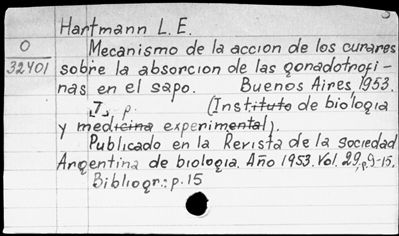 Hartmann L. E.
O
32401
Mecanismo de la accion de los curares
sobre la absorcion de las gonadotrofi-
nas en el sapo. Buenos Aires, 1953.
7 p. (Instituto de biologia
y medicina experimental).
Publicado en la Revista de la sociedad
Argentina de biologia. Año 1953. Vol. 29. p. 9-15.
Bibliogr.: p. 15